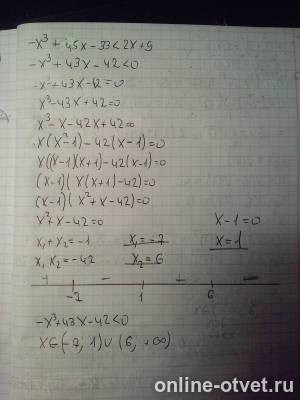 -x³ + 45x - 33 < 2x + 9
-x³ + 43x - 42 < 0
-x³ + 43x - 42 = 0
x³ - 43x + 42 = 0
x³ - x - 42x + 42 = 0
x(x² - 1) - 42(x - 1) = 0
x((x-1)(x+1) - 42(x-1) = 0
(x-1)(x(x+1) - 42) = 0
(x-1)(x² + x - 42) = 0
x² + x - 42 = 0 x - 1 = 0
x₁ + x₂ = -1 x₁ = -7 x = 1
x₁ x₂ = -42 x₂ = 6
+ - + -
-7 1 6
-x³ + 43x - 42 < 0
x ∈ (-7, 1) ∪ (6, +∞)
online-otvet.ru